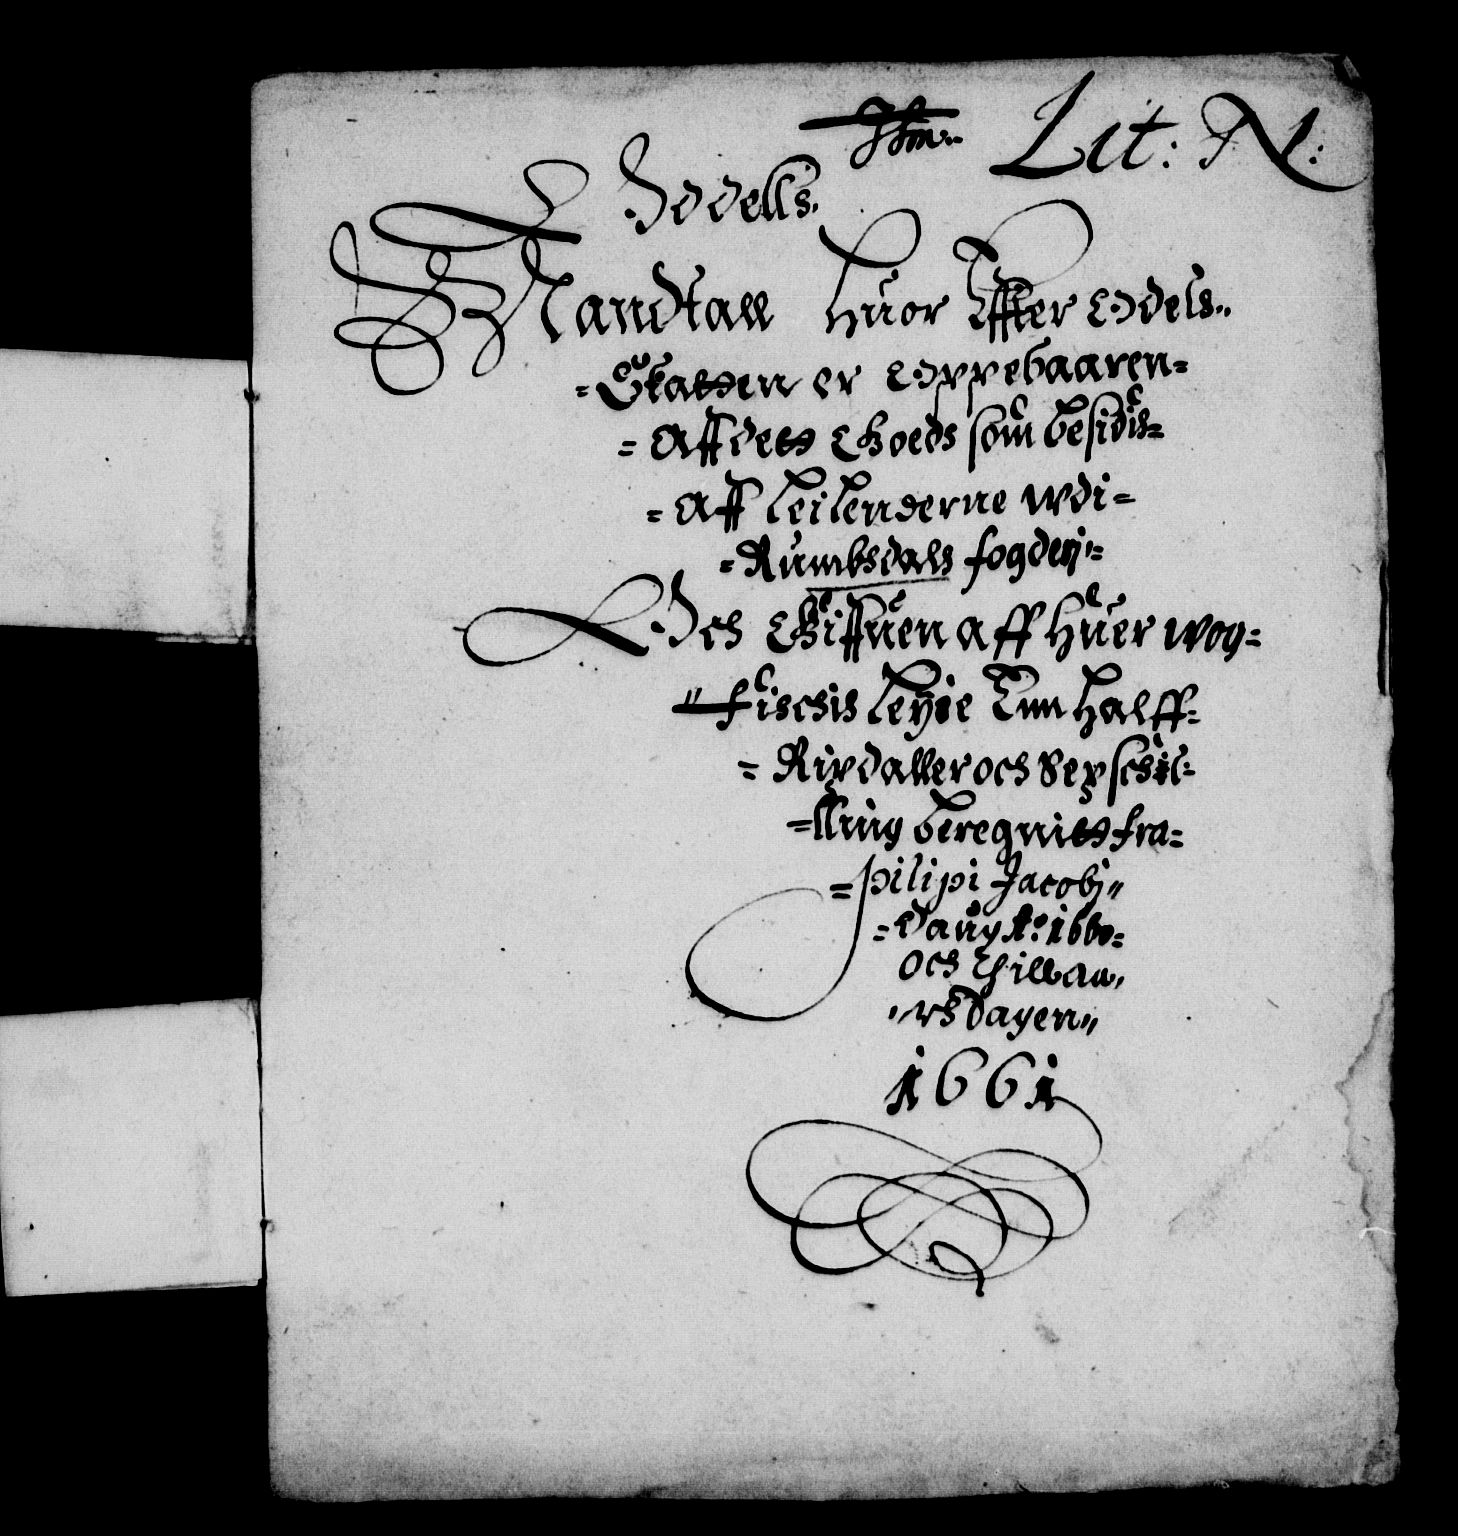 Lit: N:
Oddells
Mandtall Huor Effter Odels
=Skatten er Oppebaaren=
=Aff dett Goeds som besidis=
=Aff Leilenderne wdi=
=Rumbsdals fogderj=
Och Giffuen aff Huer wog=
fischis Leyie Enn Halff=
=Rixdaller och Sex schil=
=lling beregnitt fra=
=pilipi Jacobj
=Daug Ao: 1660=
och Thill aa
rs Dagen
1661